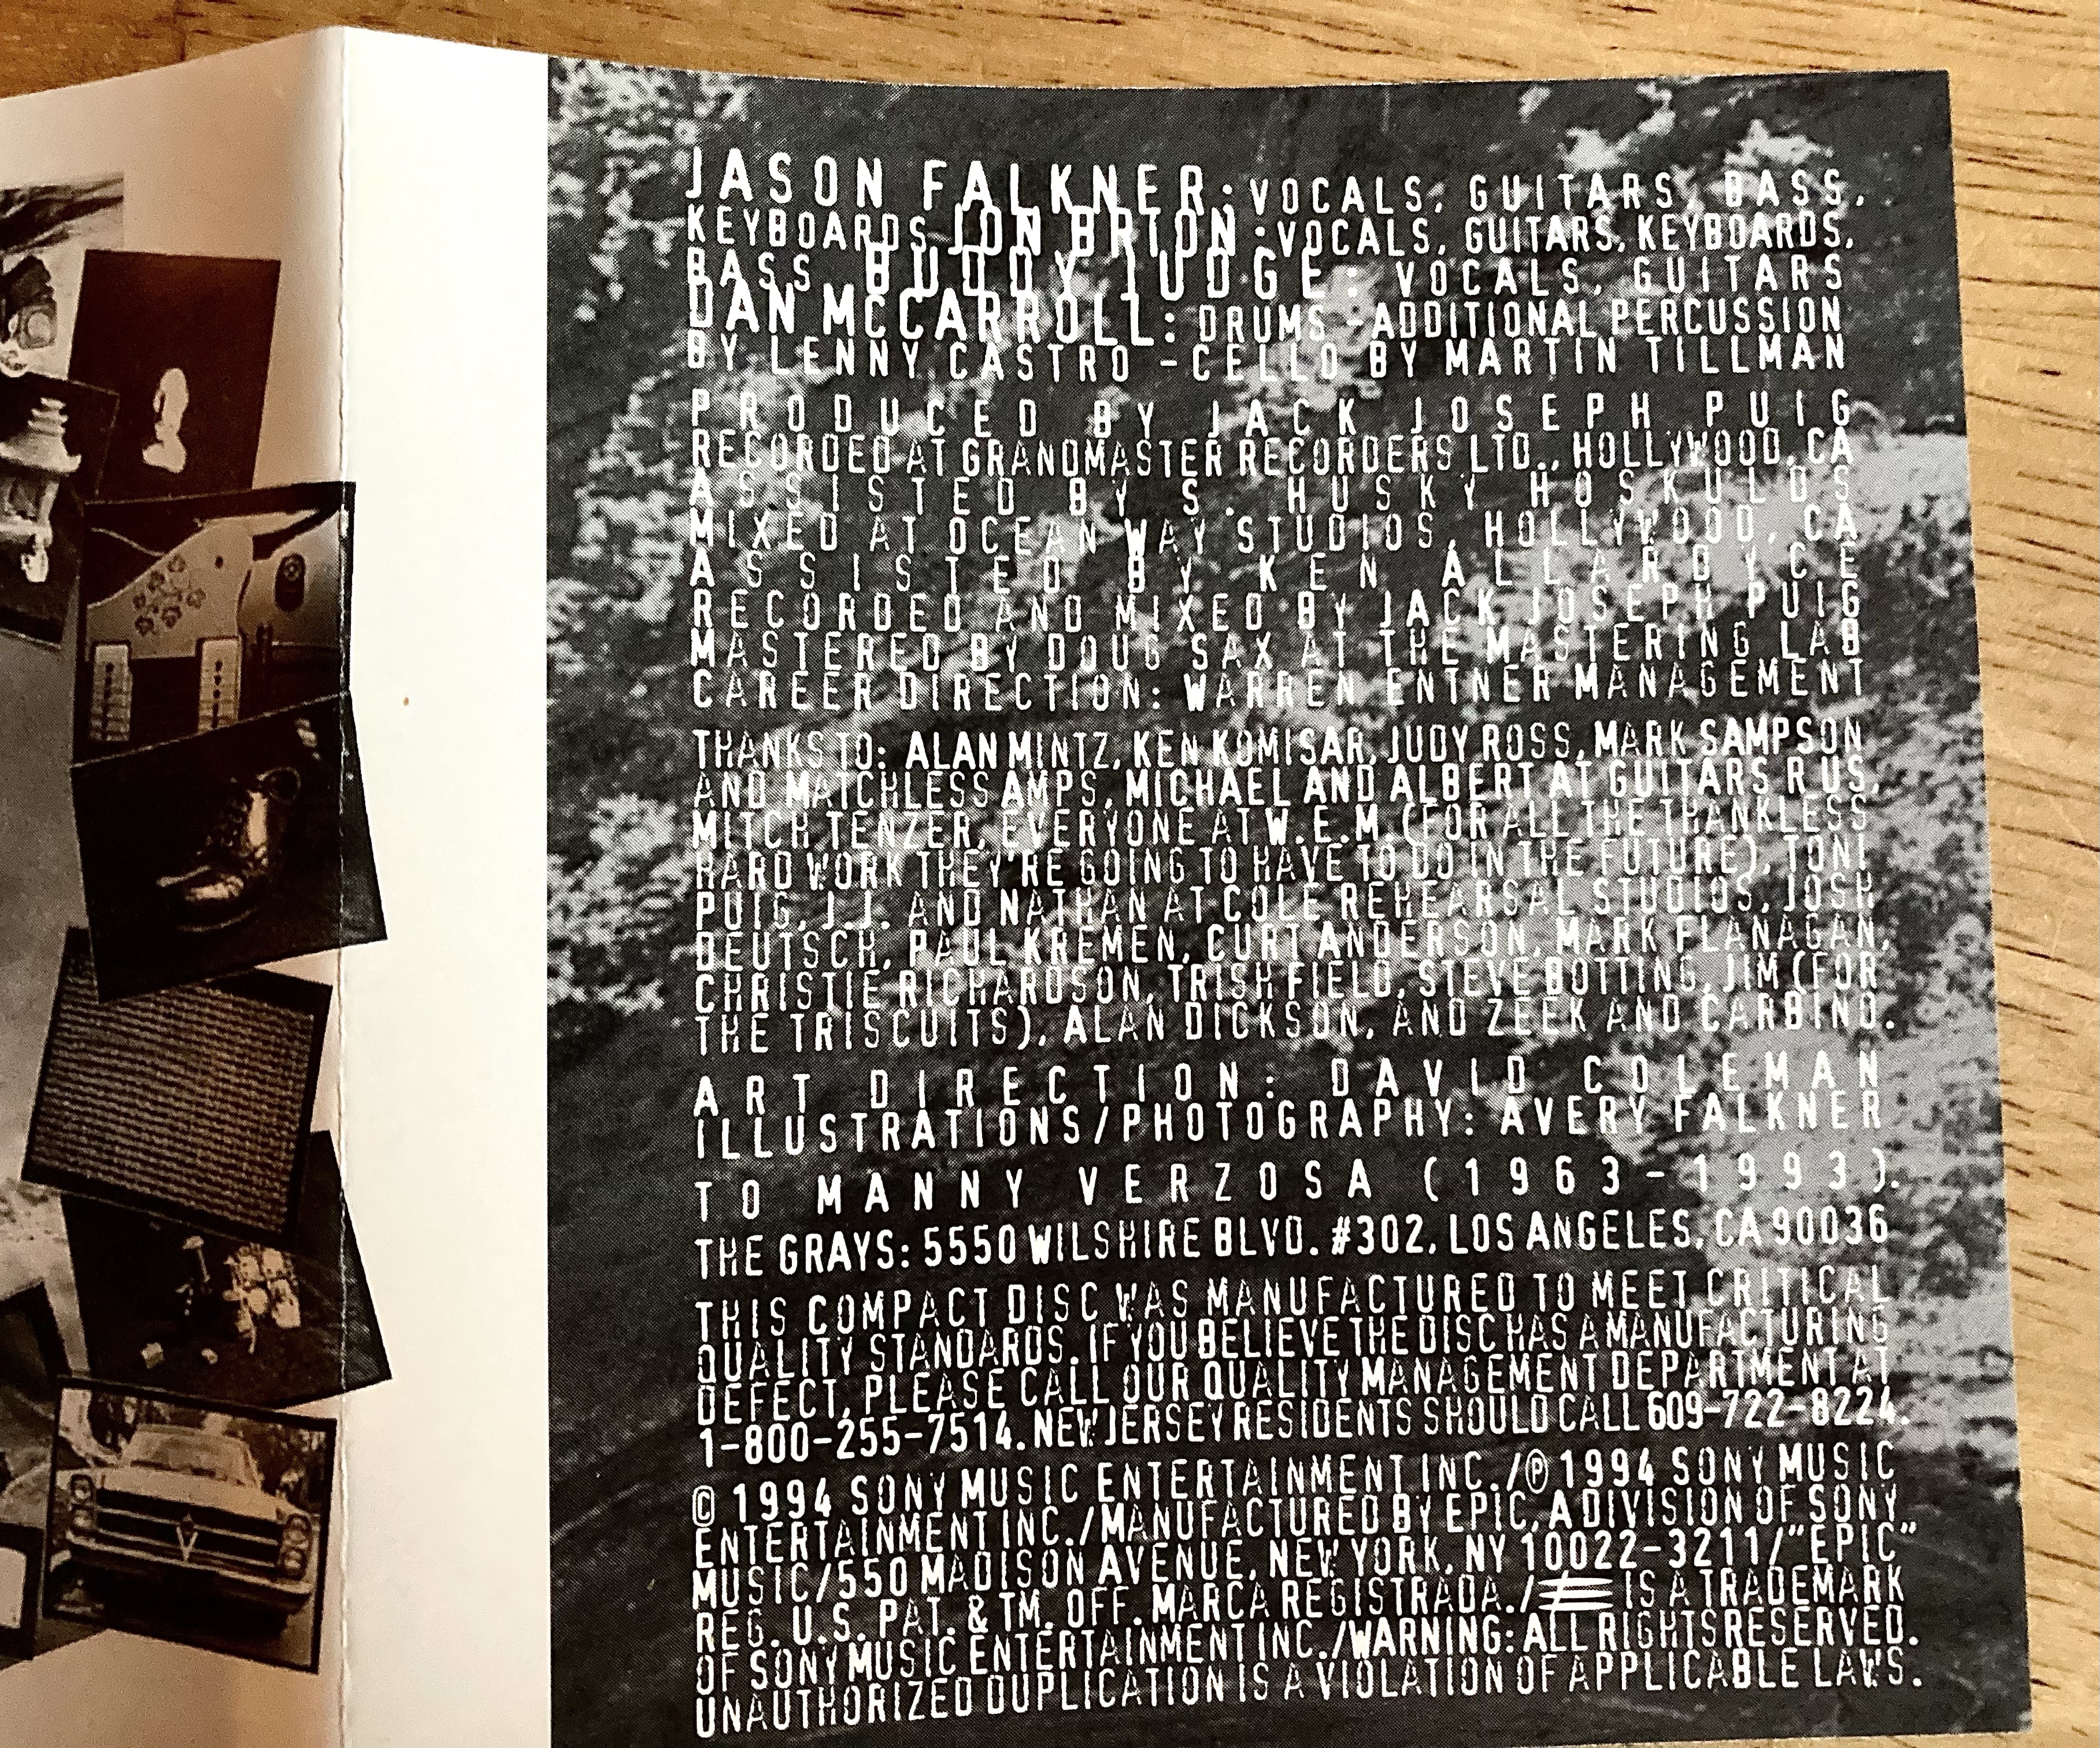 JASON FALKNER: VOCALS, GUITARS, BASS,
KEYBOARDS JON BRION: VOCALS, GUITARS, KEYBOARDS,
BASS BUDDY JUDGE: VOCALS, GUITARS
DAN MCCARROLL: DRUMS -ADDITIONAL PERCUSSION
BY LENNY CASTRO -CELLO BY MARTIN TILLMAN
PRODUCED BY JACK JOSEPH PUIG
RECORDED AT GRANDMASTER RECORDERS LTD., HOLLYWOOD, CA
ASSISTED BY S. HUSKY HOSKULDS
MIXED AT OCEAN WAY STUDIOS, HOLLYWOOD, CA
ASSISTED BY KEN ALLARDYCE
RECORDED AND MIXED BY JACK JOSEPH PUIG
MASTERED BY DOUG SAX AT THE MASTERING LAB
CAREER DIRECTION: WARREN ENTNER MANAGEMENT
THANKS TO: ALAN MINTZ, KEN KOMISAR, JUDY ROSS, MARK SAMPSON
AND MATCHLESS AMPS, MICHAEL AND ALBERT AT GUITARS R US,
MITCH TENZER, EVERYONE AT W.E.M. (FOR ALL THE THANKLESS
HARD WORK THEY'RE GOING TO HAVE TO DO IN THE FUTURE), TONI
PUIG, J.J. AND NATHAN AT COLE REHEARSAL STUDIOS, JOSH
DEUTSCH, PAUL KREMEN, CURT ANDERSON, MARK FLANAGAN,
CHRISTIE RICHARDSON, TRISH FIELD, STEVE BOTTING, JIM (FOR
THE TRISCUITS), ALAN DICKSON, AND ZEEK AND CARBINO.
ART DIRECTION: DAVID COLEMAN
ILLUSTRATIONS/PHOTOGRAPHY: AVERY FALKNER
TO MANNY VERZOSA (1963-1993).
THE GRAYS: 5550 WILSHIRE BLVD. #302, LOS ANGELES, CA 90036
THIS COMPACT DISC WAS MANUFACTURED TO MEET CRITICAL
QUALITY STANDARDS. IF YOU BELIEVE THE DISC HAS A MANUFACTURING
DEFECT, PLEASE CALL OUR QUALITY MANAGEMENT DEPARTMENT AT
1-800-255-7514. NEW JERSEY RESIDENTS SHOULD CALL 609-722-8224.
© 1994 SONY MUSIC ENTERTAINMENT INC./℗ 1994 SONY MUSIC
ENTERTAINMENT INC./MANUFACTURED BY EPIC, A DIVISION OF SONY
MUSIC/550 MADISON AVENUE, NEW YORK, NY 10022-3211/"EPIC"
REG. U.S. PAT. & TM. OFF. MARCA REGISTRADA./ IS A TRADEMARK
OF SONY MUSIC ENTERTAINMENT INC./WARNING: ALL RIGHTS RESERVED.
UNAUTHORIZED DUPLICATION IS A VIOLATION OF APPLICABLE LAWS.